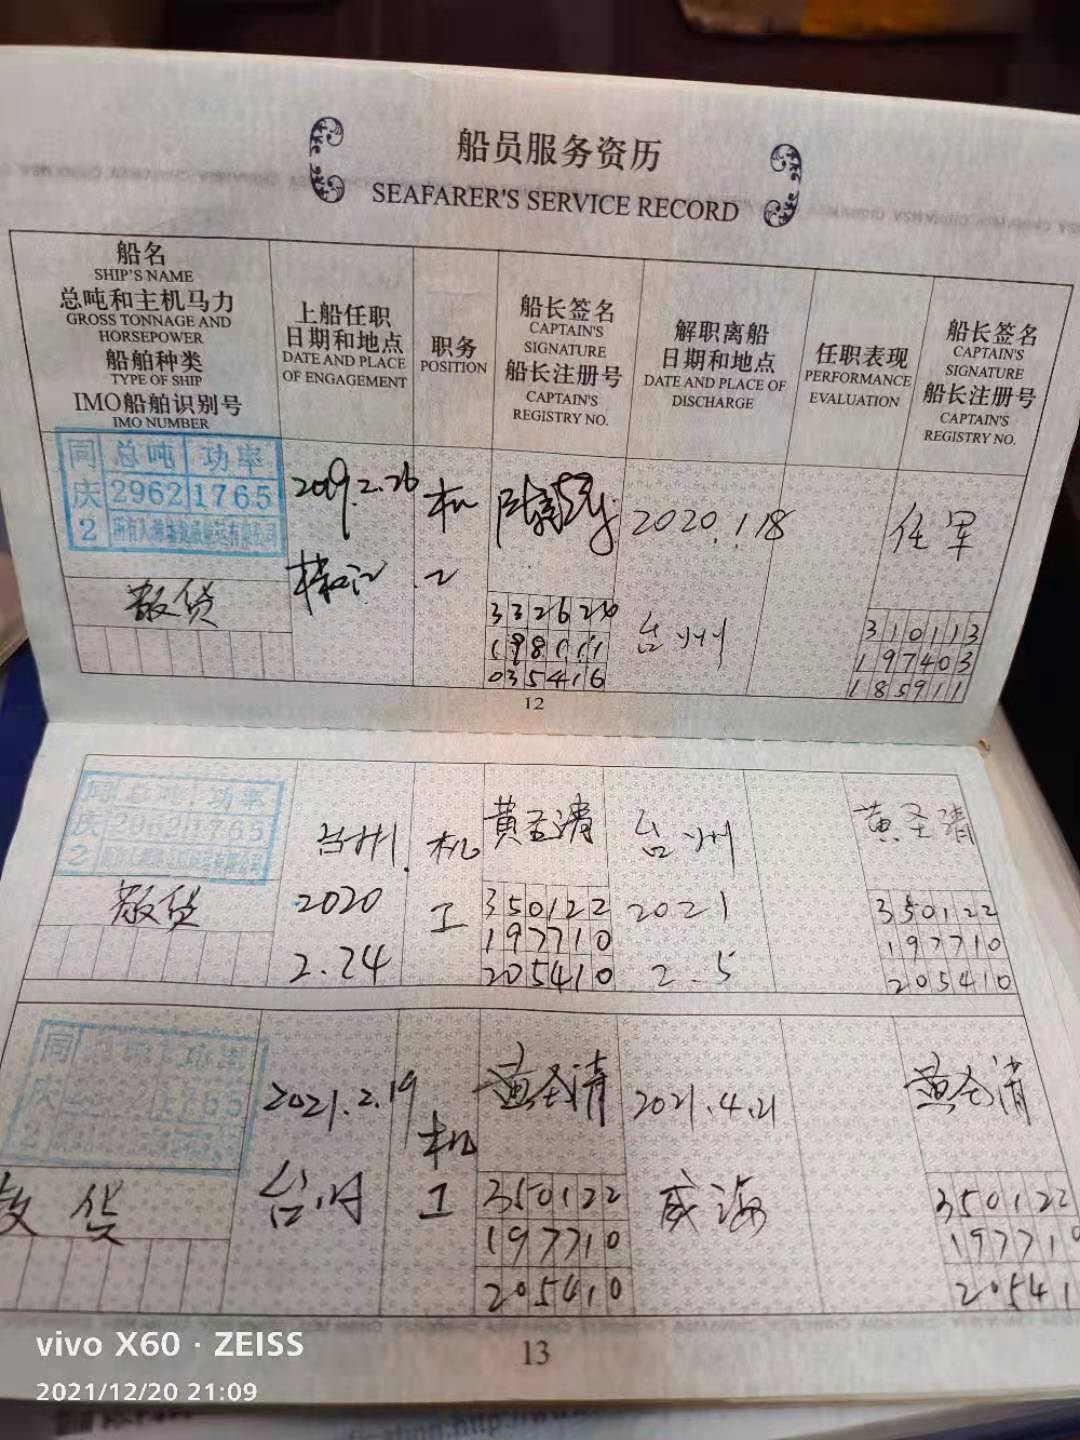 船员服务资历
SEAFARER'S SERVICE RECORD
船名
SHIP'S NAME
总吨和主机马力
GROSS TONNAGE AND
HORSEPOWER
船舶种类
TYPE OF SHIP
IMO船舶识别号
IMO NUMBER
上船任职
日期和地点
DATE AND PLACE
OF ENGAGEMENT
职务
POSITION
船长签名
CAPTAIN'S
SIGNATURE
船长注册号
CAPTAIN'S
REGISTRY NO.
解职离船
日期和地点
DATE AND PLACE OF
DISCHARGE
任职表现
PERFORMANCE
EVALUATION
船长签名
CAPTAIN'S
SIGNATURE
船长注册号
CAPTAIN'S
REGISTRY NO.
同庆2
总吨 功率
2962 1765
散货
2019.2.26
椒江
机工
332620
198111
035416
2020.1.18
台州
任军
310113
197403
185911
12
同庆2
总吨 功率
2962 1765
散货
台州
2020
2.24
机工
黄圣清
350122
197710
205410
台州
2021
2.5
黄圣清
350122
197710
205410
同庆2
总吨 功率
1765
散货
2021.2.19
台州
机工
黄圣清
350122
197710
205410
2021.4.21
威海
黄圣清
350122
197710
20541
13
vivo X60 · ZEISS
2021/12/20 21:09